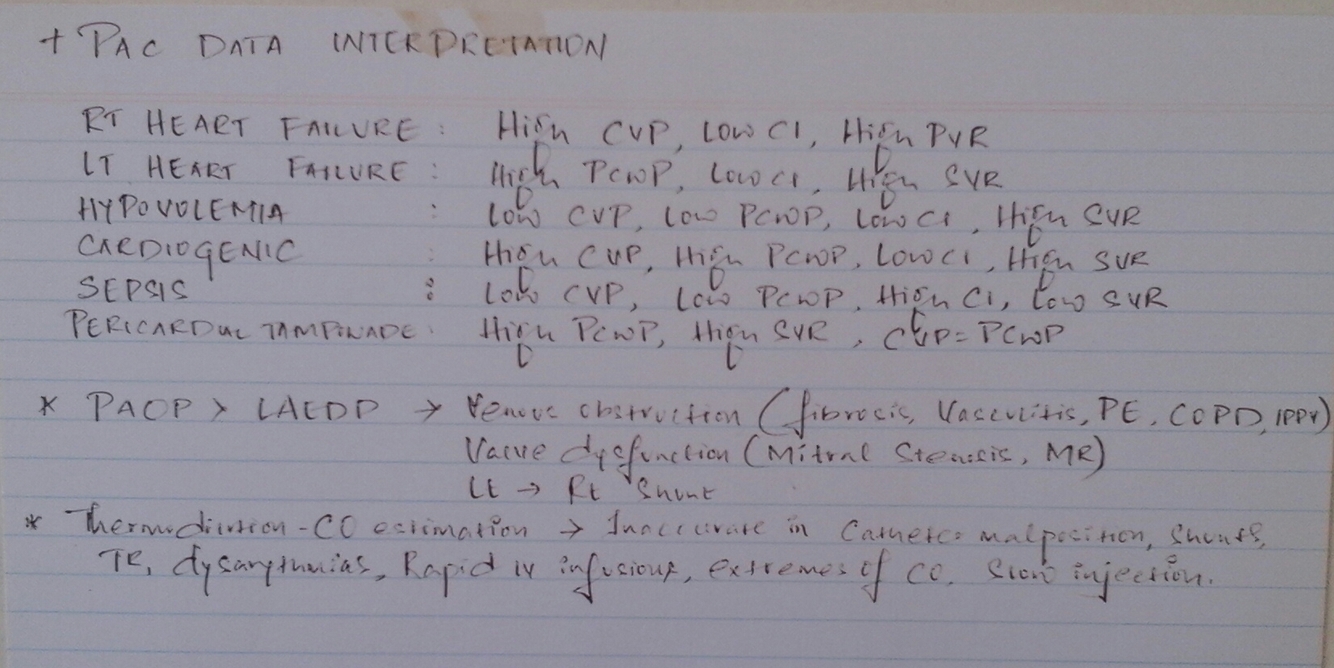 + PAC DATA INTERPRETATION
RT HEART FAILURE : High CVP, Low CI, High PVR
LT HEART FAILURE : High PCWP, Low CI, High SVR
HYPOVOLEMIA : Low CVP, Low PCWP, Low CI, High SVR
CARDIOGENIC : High CVP, High PCWP, Low CI, High SVR
SEPSIS : Low CVP, Low PCWP, High CI, Low SVR
PERICARDIAL TAMPONADE : High PCWP, High SVR, CVP = PCWP
* PAOP > LAEDP → Venous obstruction (fibrosis, Vasculitis, PE, COPD, IPPV)
Valve dysfunction (Mitral Stenosis, MR)
Lt → Rt Shunt
* Thermodilution - CO estimation → Inaccurate in Catheter malposition, Shunts,
TR, dysarythmias, Rapid IV infusions, extremes of CO. Slow injection.